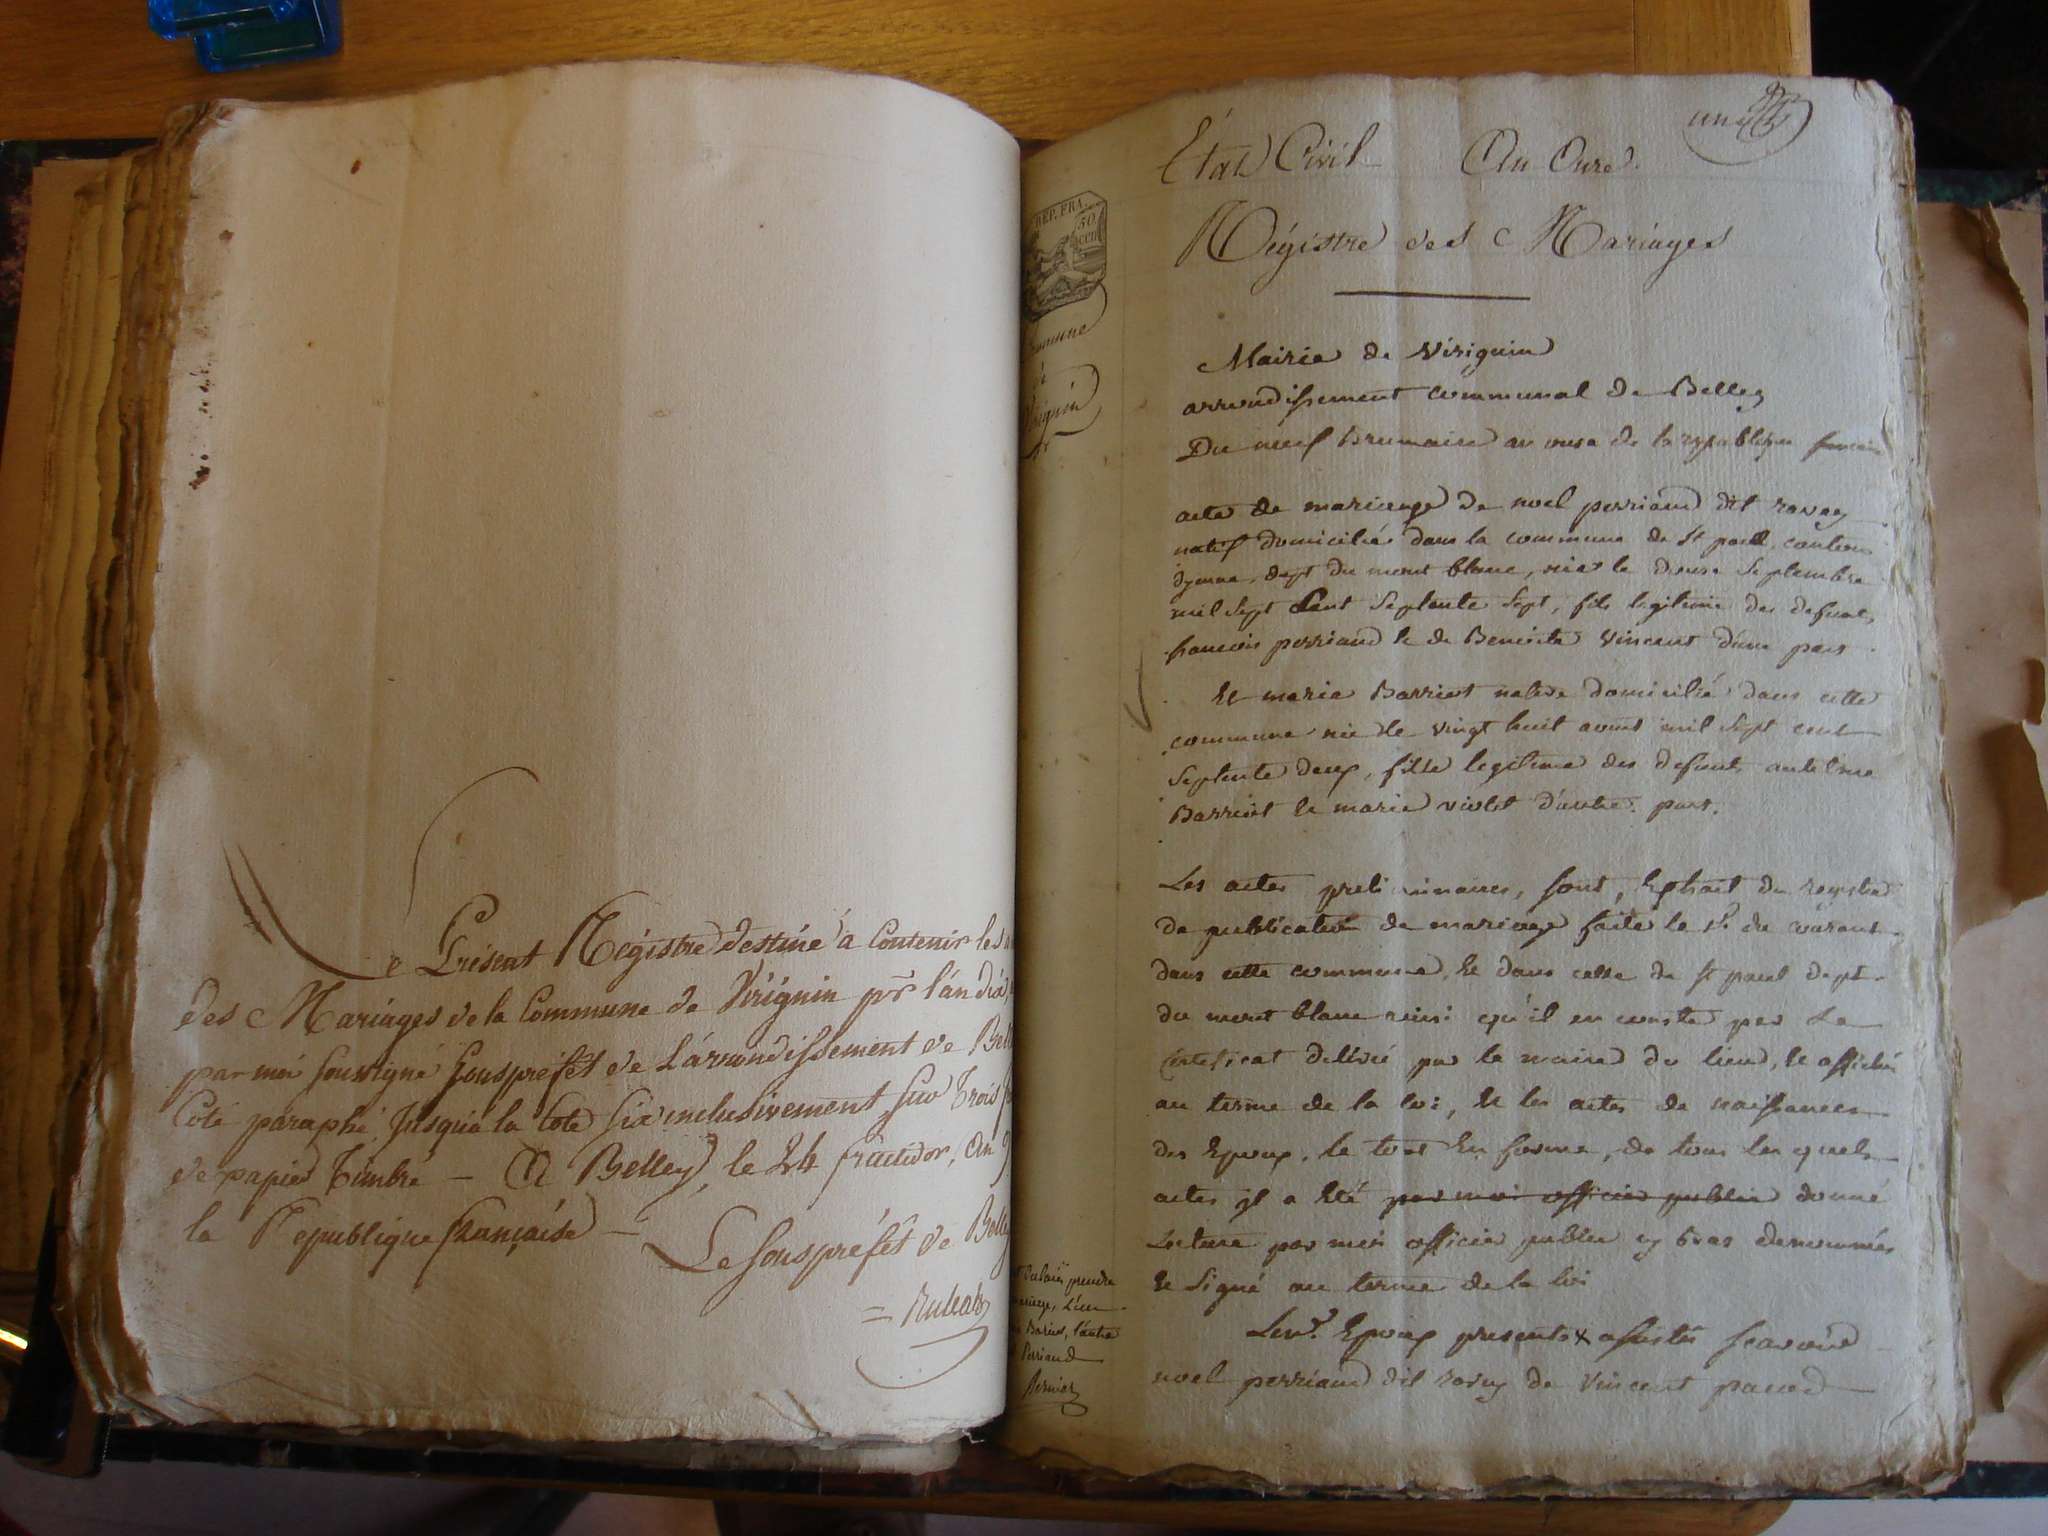 Présent Régistre destiné à Contenir les
des Mariages de la Commune de Virignin pr l'an dix,
par moi soussigné Souspréfêt de L'arrondissement de Bell
Coté paraphé, Jusqu'à la Cote six inclusivement sur Trois
de papier Timbré — A Belley, le 24 fructidor, an 9
la République française —
Le souspréfêt de Belley
une
État Civil An Onze.
Régistre des Mariages
REP. FRA.
50
Commune
de
Virignin
Mairie de Virignin
arrondissement communal de Belley
Du neuf Brumaire an onze de la republique
acte de mariage de noel perriand dit ravey
natif domicilié dans la commune de St paul, canton
dyenne, dept du mont blanc, née le douse Septembre
mil Sept Cent Septente Sept, fils legitime des defunts
francois perriand et de Benoite Vincent d'une part
Et marie Barriot native domicilié dans cette
commune née le vingt huit aoust mil Sept cent
Septente deux, fille legitime des defunts antelme
Barriot et marie violet d'autre part.
Les actes preliminaires, sont, Extrait du registre
de publication de mariage faite le du courant
dans cette commune, Et dans celle de St paul dept
du mont blanc ainsi qu'il en conste par Le
Certificat delivré par le maire du lieu, Et affichée
au terme de la loi, Et les actes de naissances
des Epoux, le tout En forme, de tous les quels
actes il a Eté par moi officier public donné
Lecture par moi officier public
Et Signé au terme de la loi
prendre
mariage, L'un
Barriot, l'autre
Perriand
Les Epoux presents assistés scavoir
noel perriand dit ravey de Vincent